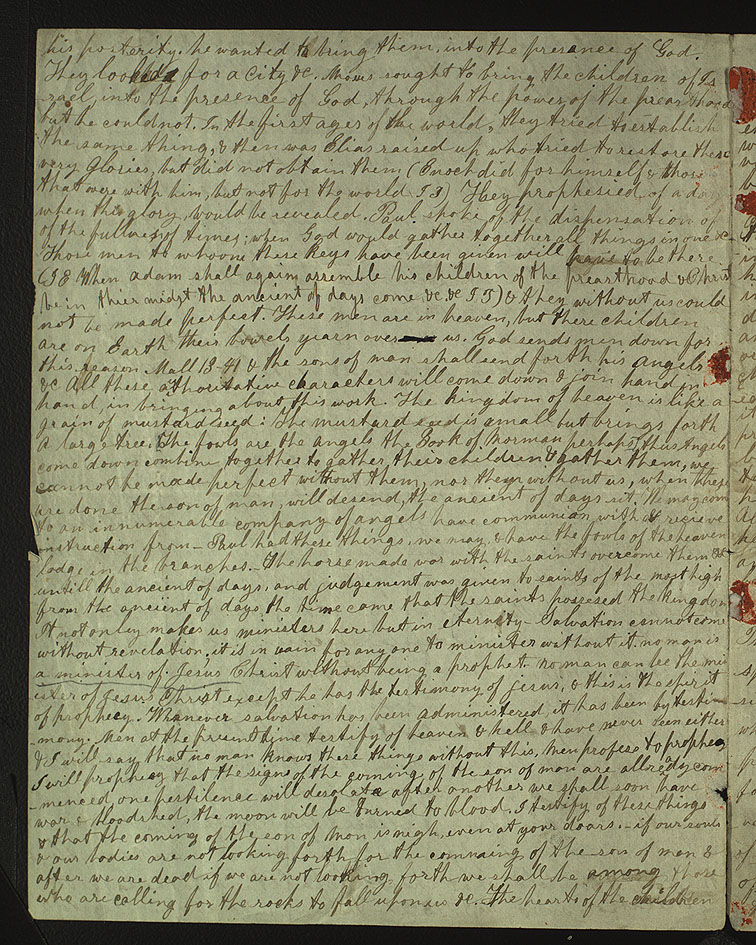 his posterity. he wanted to bring them, into the presance of God.
They looked for a city &c. Moses sought to bring the children of Is
rael, into the presence of God, through the power of the preasthood
but he could not. In the first ages of the world, they tried to establish
the same thing, & then was Elias raised up who tried to restore these
very Glories, but did not obtain them (Enoch did for himself & those
that were with him, but not for the world J 3) They prophesied of a day
when this glory, would be revealed, Paul spoke of the dispensation of
of the fullness of times; when God would gather together all things in one &c
Those men to whoone these Keys have been given will have to be there
(J E When adam shall again assemble his children of the preasthood & Christ
be in their midst the ancient of days come &c &c J T) & they without us could
not be made perfect. These men are in heaven, but there children
are on Earth their bowels yearn over us. God sends men down for
this reason Mall 13-41 & the sons of man shall send forth his Angels
&c All these athoritative characters will come down & join hand in
hand, in bringing about this work. The kingdom of heaven is like a
grain of mustard seed: The mustard seed is small but brings forth
a large tree. The fowls are the angels the Book of Morman perhaps thus Angels
come down combine together to gather their children, & gather them, we
cannot be made perfect without them, nor they without us, when these
are done the son of man, will desend, the ancient of days sit We may com
to an innumerable company of angels have communion with & recieve
instruction from - Paul had these things, we may, & have the fowls of the heaven
lodge in the branches. - The horse made war with the saints overcome them &c
untill the ancient of days, and judgement was given to saints of the most high
from the ancient of days the time came that the saints possesed the kingdom
It not only makes us ministers here but in eternity - Salvation cannot come
without revelation, it is in vain for anyone to minister without it. no man is
a minister of Jesus Christ without being a prophet. no man can be the min
ister of Jesus Christ except he has the testimony of jesus, & this is the spirit
of prophecy. Whanever salvation has been administered it has been by testi-
mony. Men at the present time testify of heaven & hell & have never seen either
& I will say that no man knows these things without this, Men profess to prophecy
I will prophecy that the signs of the coming of the son of man are allready com
menced, one pestilence will desolate after another we shall soon have
war & bloodshed, the moon will be turned to blood. I testify of these things
& that the coming of the son of Man is nigh, even at your doars. - if our souls
& our bodies are not looking forth for the comaing of the son of man &
after we are dead if we are not looking forth we shall be among those
who are calling for the rocks to fall upon us &c. The hearts of the children